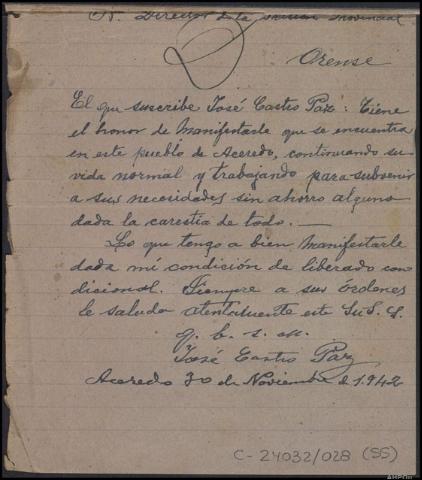 Sr. Director de la prisión provincial
Orense
El que suscribe José Castro Paz: Tiene
el honor de Manifestarle que se encuentra
en este pueblo de Aceredo, continuando su
vida normal y trabajando para subvenir
a sus necesidades sin ahorro alguno
dada la carestia de todo. —
Lo que tengo a bien Manifestarle
dada mi condición de liberado con
dicional. Siempre a sus órdenes
le saluda atentamente este Su S. S.
q. b. s. m.
José Castro Paz
Aceredo 30 de Noviembre d 1.942
C-24032/028 (SS)